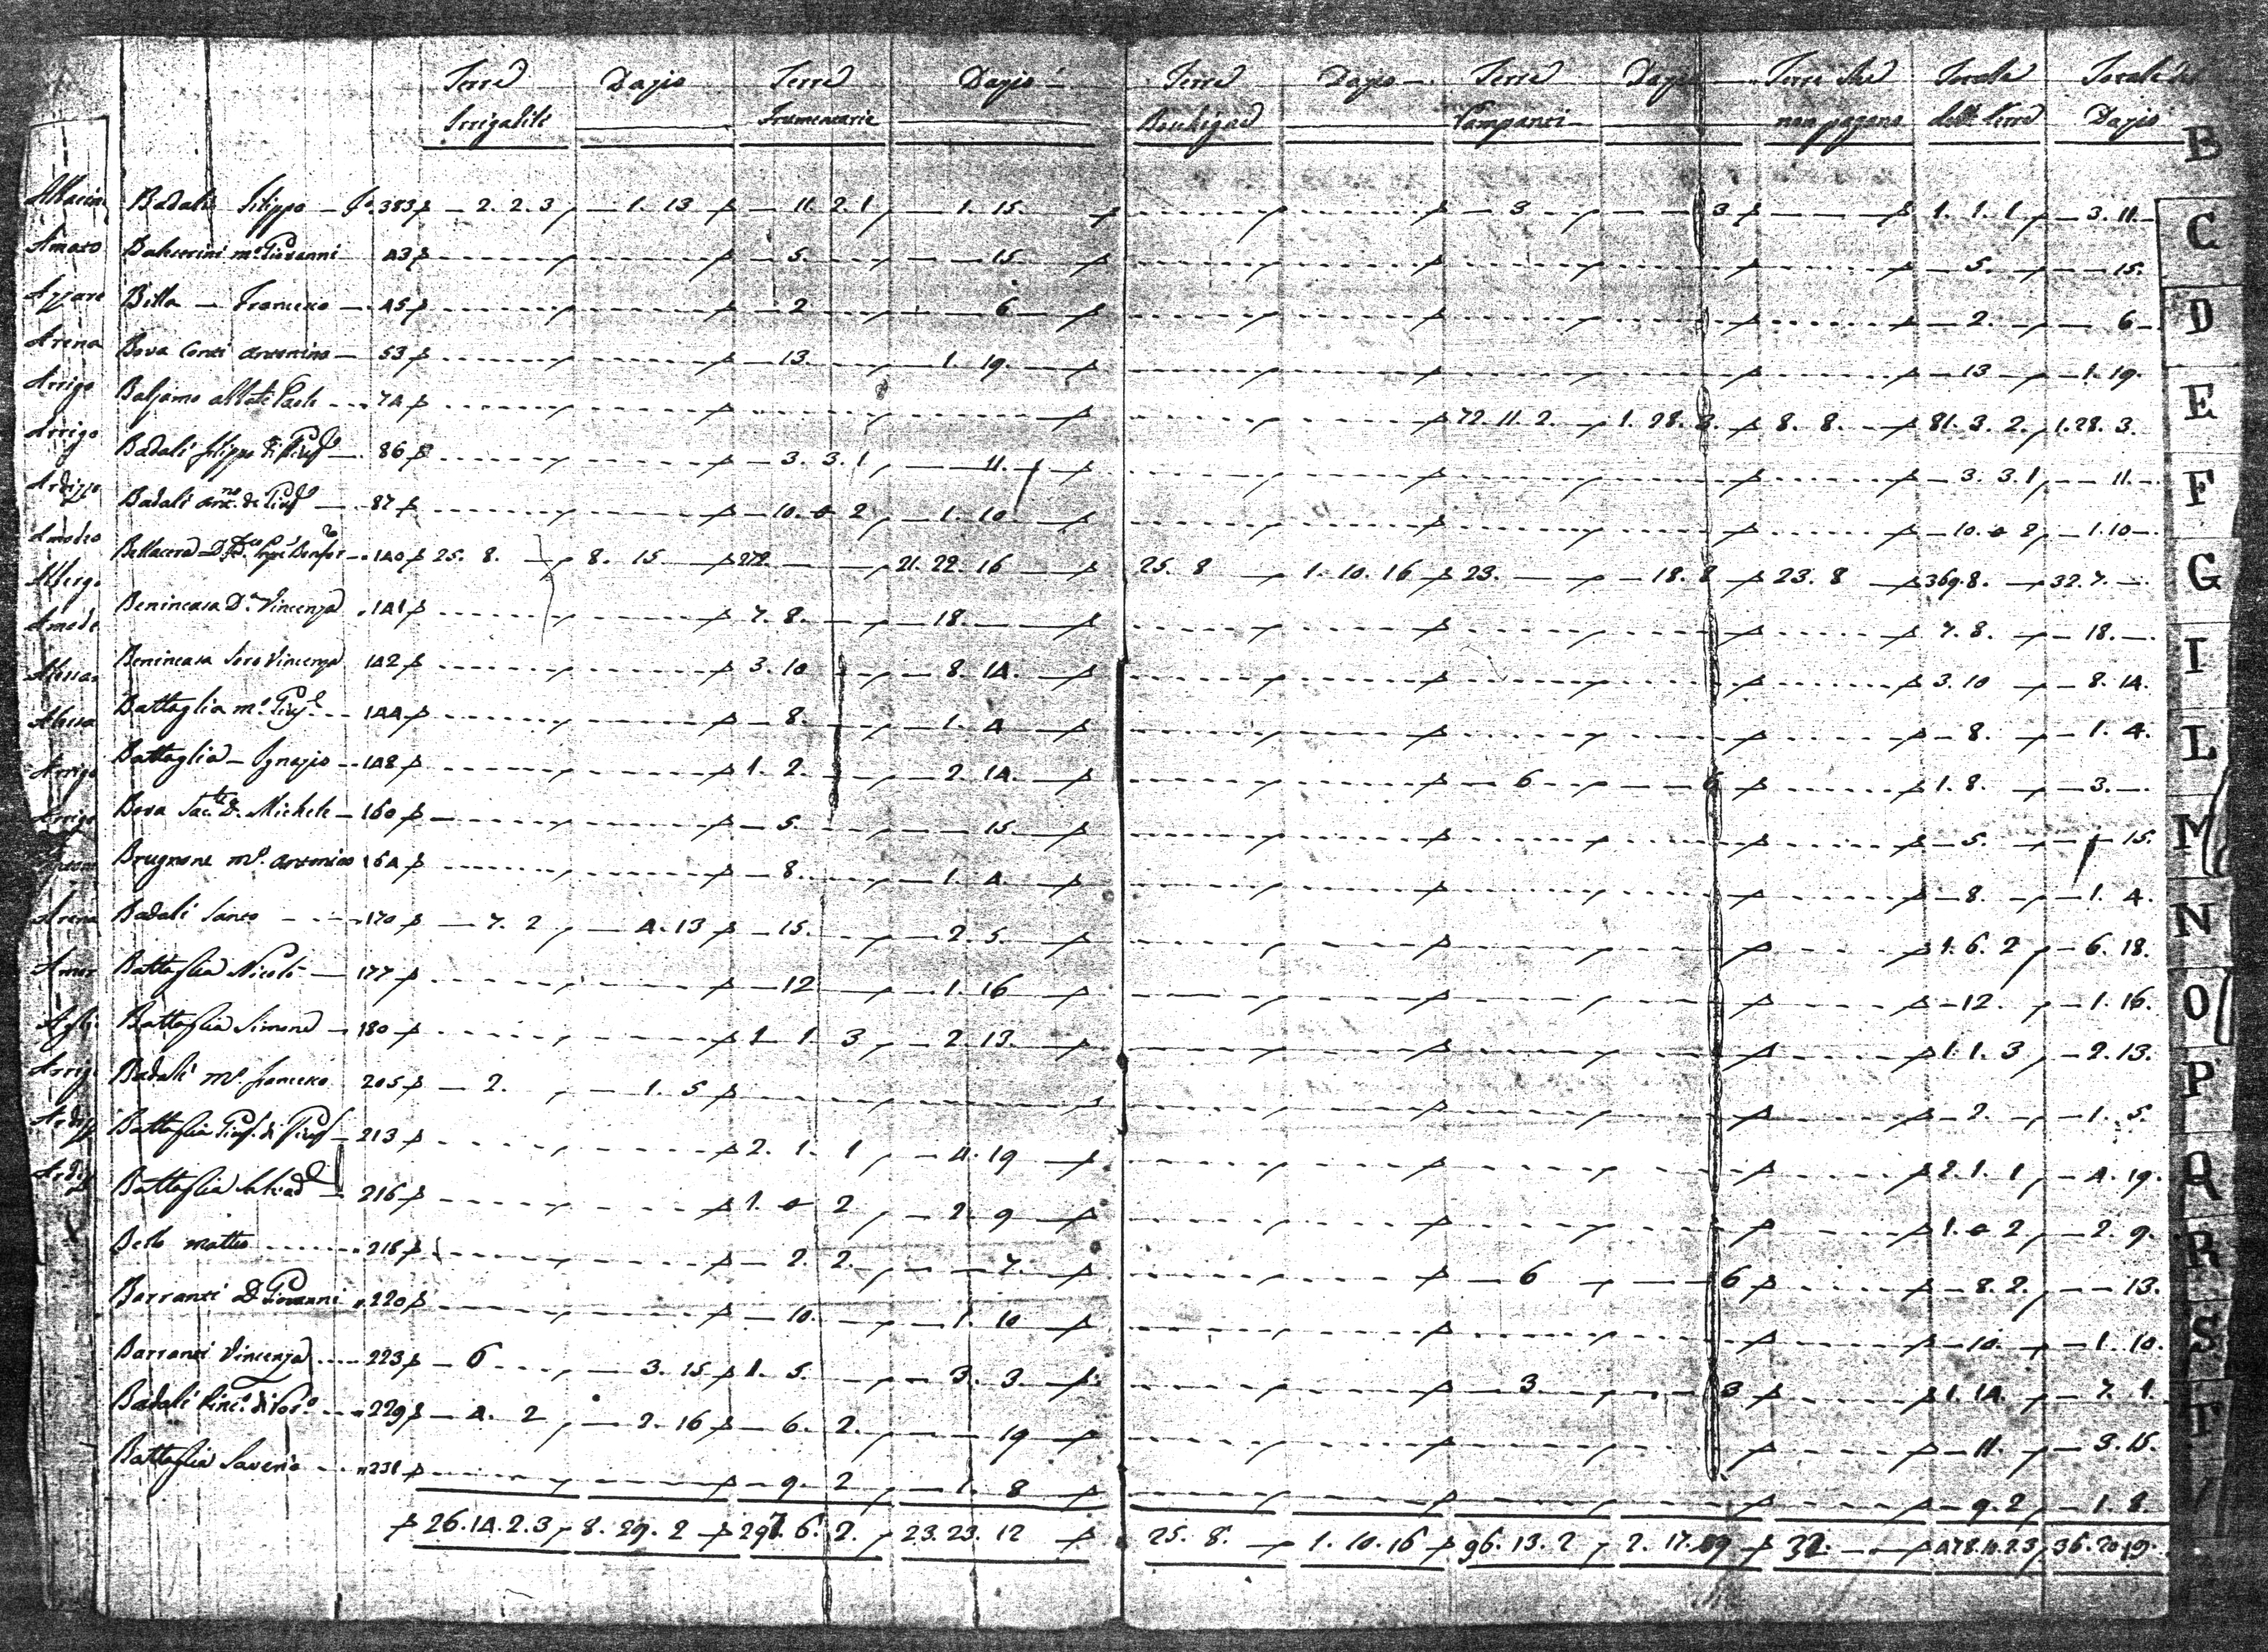 Terre Dazio Terre Dazio Terre Dazio Terre Dazio Terre che Totale Totale del
Irrigabili Frumentarie Boschigne Vampanti non pagano delle terre Dazio
B
C
D
E
F
G
I
L
M
N
O
P
Q
R
S
T
V
Amato
Azzare
Arena
Arrigo
Arrigo
Ardizzo
Amodeo
Albergo
Amode
Alessa
Arrigo
Arrigo
Arena
Amor
Arrig
Ardizz
Ardizz
Badali Filippo — fo. 383 — 2. 2. 3 — 1. 13 — 11. 2. 1 — 1. 15. — 3 — 3 — 1. 1. 1 — 3. 11.
mo. Giovanni 43 — 5. — 15. — 5. — 15.
Billa — Francesco — 45 — 2 — 6 — 2. — 6
Bova Conti Antonino — 53 — 13. — 1. 19. — 13 — 1. 19.
Balsamo Abbate Paolo — 74 — 72. 11. 2. — 1. 28. 3. — 8. 8. — 81. 3. 2. 1. 28. 3.
Badali Filippo di Giusе — 86 — 3. 3. 1 — 11. — 3. 3. 1 — 11.
Badali Anno. di Giuse — 87 — 10. 0 2 — 1. 10. — 10. 0 2 — 1. 10
Bellacera — 140 25. 8. — 8. 15 — 272. — 21. 22. 16 — 25. 8 — 1. 10. 16 — 23. — 18. 8 — 23. 8 — 369. 8. — 32. 7.
Benincasa Da. Vincenza — 141 — 7. 8. — 18. — 7. 8. — 18.
Benincasa Soro Vincenza 142 — 3. 10 — 8. 14. — 3. 10 — 8. 14.
Battaglia mo. Giuse. — 144 — 8. — 1. 4 — 8. — 1. 4.
Battaglia — Ignazio — 148 — 1. 2. — 2. 14. — 6 — 6 — 1. 8. — 3.
Bova Sacte. D. Michele — 160 — 5. — 15. — 5. — 15.
Brugnone mo. Antonino 164 — 8. — 1. 4. — 8. — 1. 4.
Badali Santo — 170 — 7. 2 — 4. 13 — 15. — 2. 5. — 1. 6. 2 — 6. 18.
Battaglia Nicolò — 177 — 12 — 1. 16 — 12. — 1. 16.
Battaglia Simone — 180 — 1 1 3 — 2. 13. — 1. 1. 3 — 2. 13.
Badali mo. Francesco 205 — 2. — 1. 5 — 2. — 1. 5.
Battaglia Giuse. di Giuse — 213 — 2. 1. 1 — 4. 19 — 2. 1. 1 — 4. 19.
Battaglia — 216 — 1. 0 2 — 2. 9 — 1. 0 2 — 2. 9.
Bello Matteo — 218 — 2. 2. — 7. — 6 — 6 — 8. 2. — 13.
Barranti D. Giovanni 220 — 10. — 1. 10 — 10. — 1. 10.
Barranti Vincenza — 223 — 6 — 3. 15 — 1. 5. — 3. 3. — 3 — 3 — 1. 14. — 7. 1.
Badali — 229 — 4. 2 — 2. 16 — 6. 2. — 19 — 11. — 3. 15.
Battaglia Saverio — 231 — 9. 2 — 1. 8 — 9. 2 — 1. 8.
26. 14. 2. 3 8. 29. 2 297. 6. 2. 23. 23. 12 25. 8. — 1. 10. 16 96. 13. 2 2. 17. 09 32. — 478. 11. 2. 3 36. 20. 19.